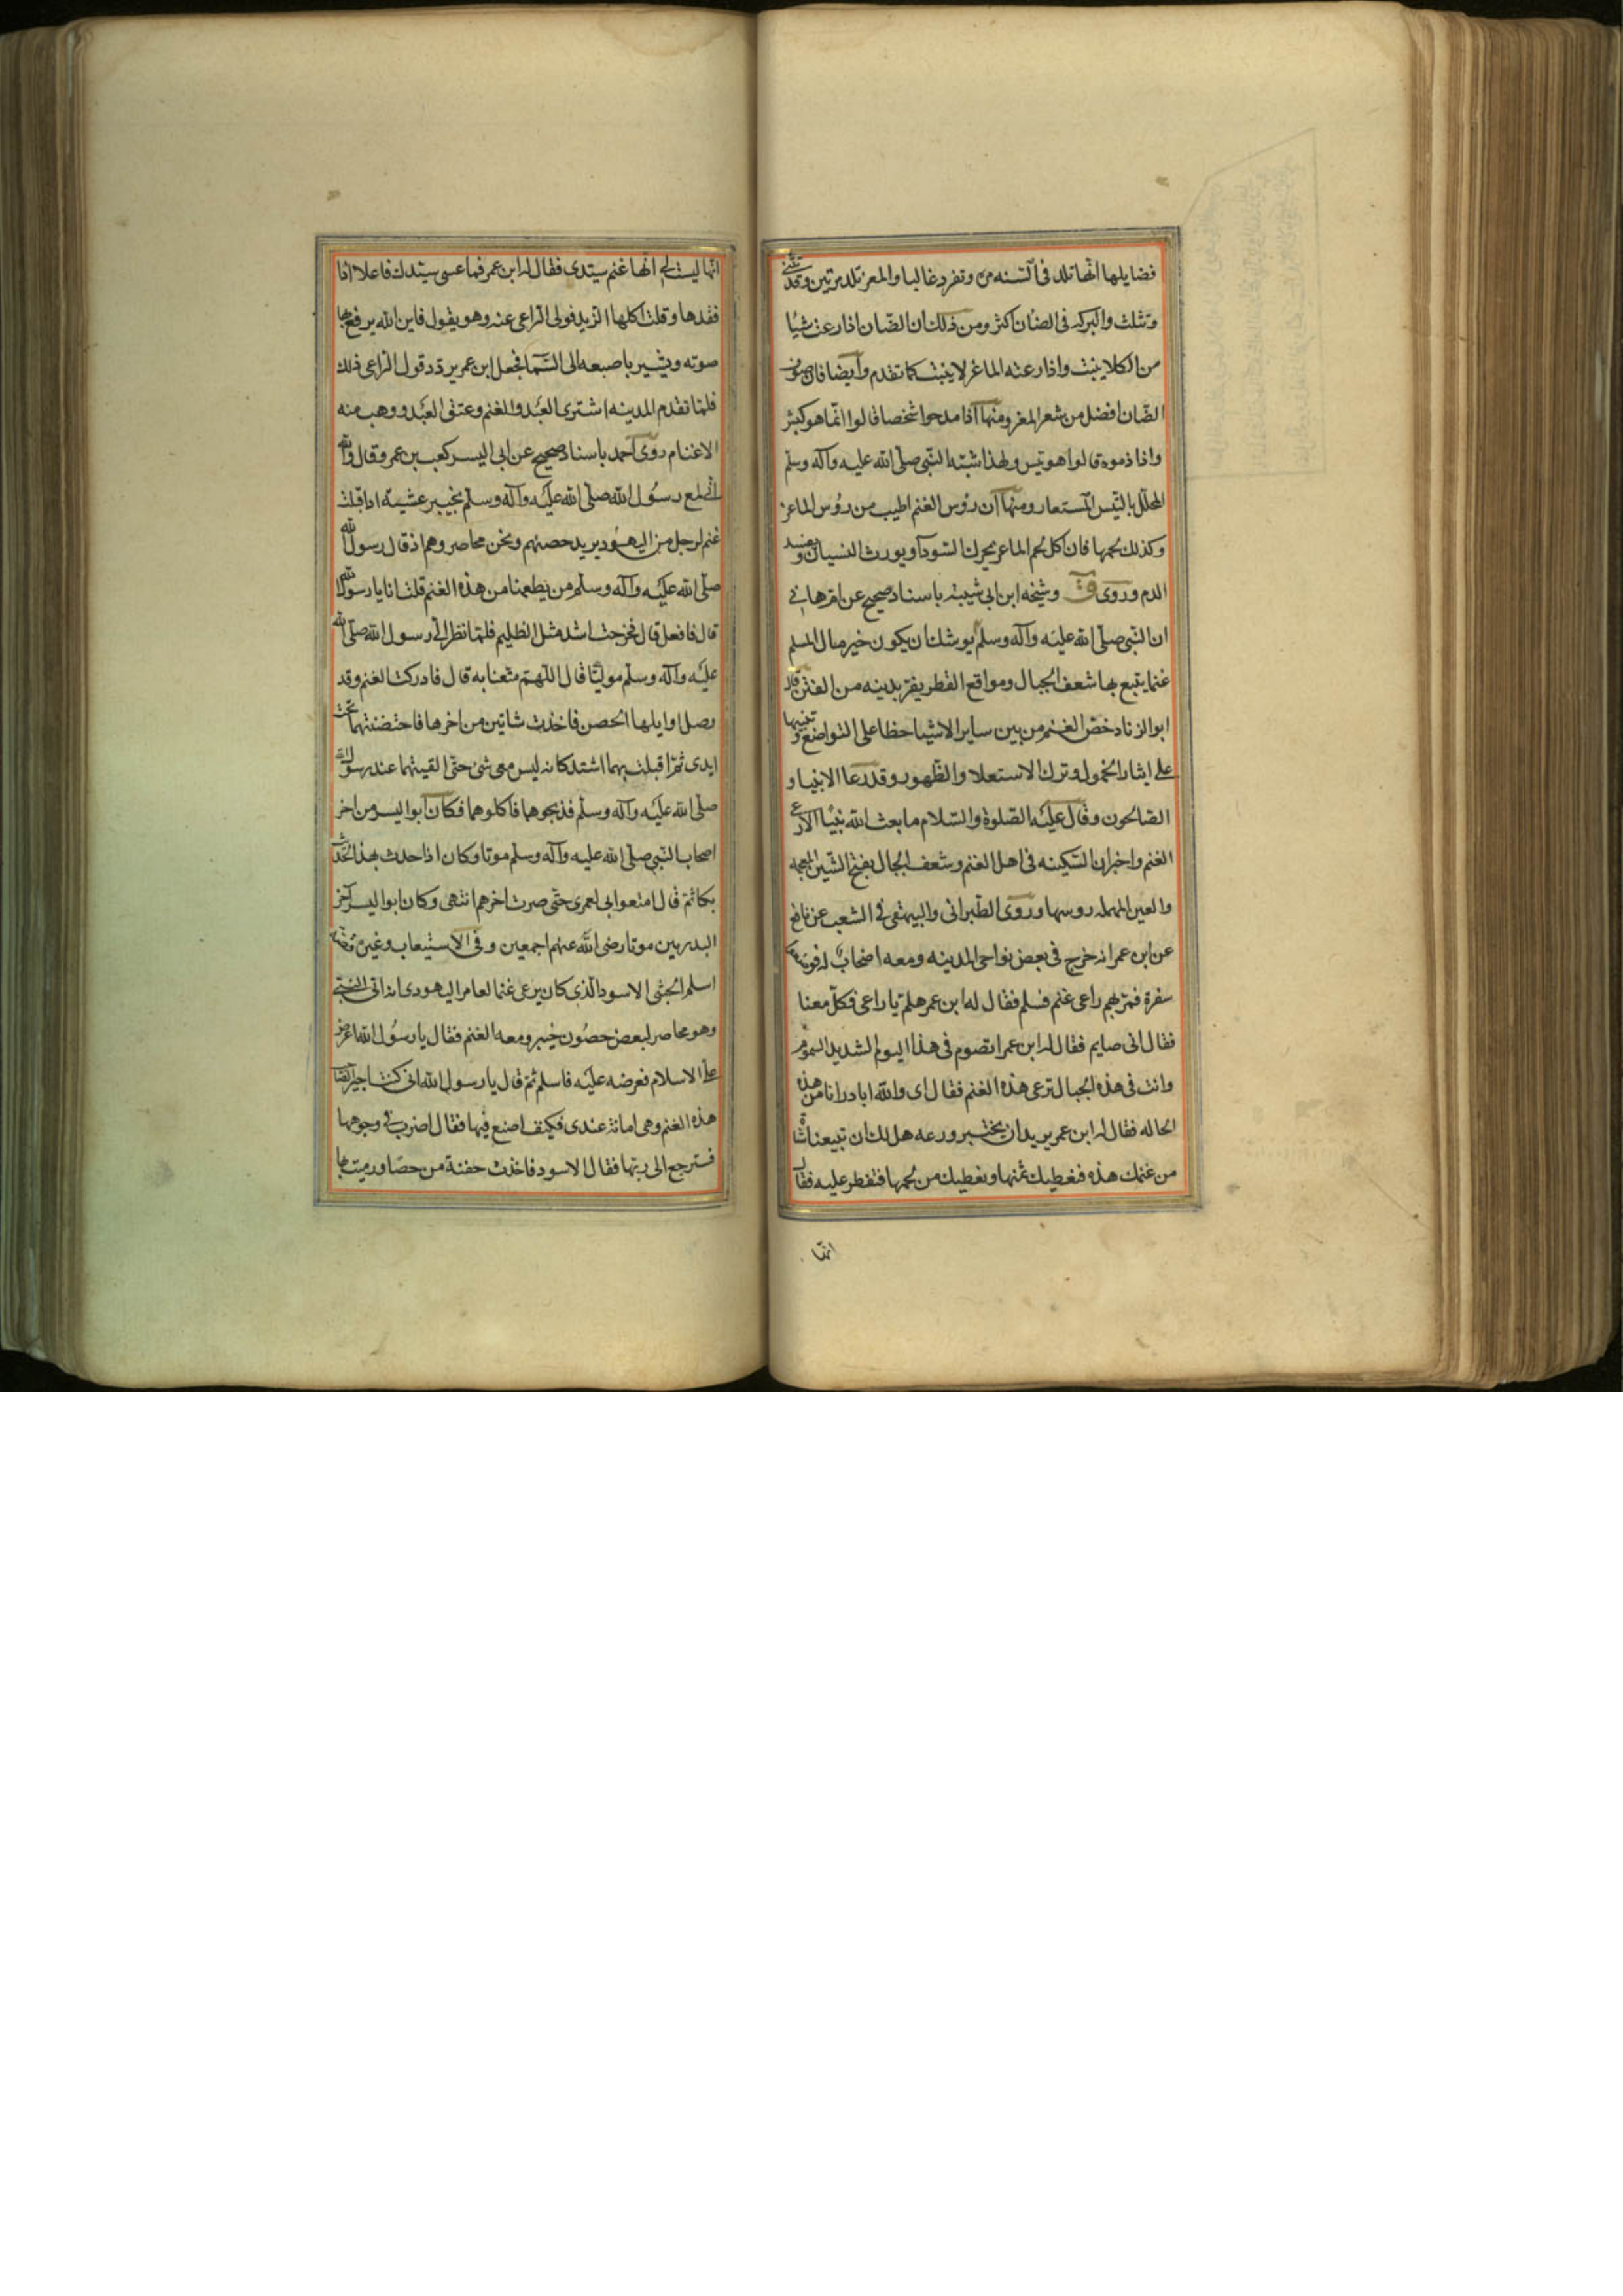 فضايلها انها تلد فى السنه مرة وتفرد غالبا والمعز تلد مرتين وقد تثنى
وتثلث والبركه فى الضان اكثر ومن ذلك ان الضان اذا رعت شيا
من الكلا ينبت واذا رعته الماعز لا ينبت كما تقدم وايضا فان صوف
الضان افضل من شعر المعز ومنها اذا مدحوا شخصا قالوا انما هو كبش
واذا ذموه قالوا هو تيس ولهذا شبه النبى صلى الله عليه وآله وسلم
المحلل بالتيس المستعار ومنها ان رؤس الغنم اطيب من رؤس الماعز
وكذلك لحمها فان اكل لحم الماعز يحرك السودآ ويورث النسيان ويفسد
الدم وروى ق وشيخه ابن ابى شيبة باسناد صحيح عن ام هانى
ان النبى صلى الله عليه وآله وسلم يوشك ان يكون خير مال المسلم
غنما يتبع بها شعف الجبال ومواقع القطر يفر بدينه من الفتن قال
ابو الزناد خص الغنم من بين ساير الاشيا حظا على التواضع وتنبيها
على ايثار الخمول وترك الاستعلا والظهور وقد رعا الانبيا و
الصالحون وقال عليه الصلوة والسلام ما بعث الله نبيا الا رعى
الغنم واخبر ان السكينه فى اهل الغنم وشعف الجبال بفتح الشين المعجمه
والعين المهمله روسها وروى الطبرانى والبيهقى فى الشعب عن نافع
عن ابن عمر انه خرج فى بعض نواحى المدينه ومعه اصحاب له فوضعوا
سفرة فمر بهم راعى غنم فسلم فقال له ابن عمر هلم يا راعى فكل معنا
فقال انى صايم فقال له ابن عمر اتصوم فى هذا اليوم الشديد السموم
وانت فى هذه الجبال ترعى هذه الغنم فقال اى والله ابادر انا من هذه
الحاله فقال له ابن عمر يريد ان يختبر ورعه هل لك ان تبيعنا شاة
من غنمك هذه فنعطيك ثمنها ونعطيك من لحمها فتفطر عليه فقال
انها
انها ليست لى انها غنم سيدى فقال له ابن عمر فما عسى سيدك فاعلا اذا
فقدها وقلت اكلها الذيب فولى الراعى عنه وهو يقول فاين الله يرفع بها
صوته ويشير باصبعه الى السما فجعل ابن عمر يردد قول الراعى ذلك
فلما تقدم المدينه اشترى العبد والغنم وعتق العبد ووهب منه
الاغنام روى احمد باسناد صحيح عن ابى اليسر كعب بن عمر وقال والله
انى لمع رسول الله صلى الله عليه وآله وسلم بخيبر عشية اذ اقبلت
غنم لرجل من اليهود يريد حصنهم ونحن محاصروهم اذ قال رسول الله
صلى الله عليه وآله وسلم من يطعمنا من هذه الغنم قلت انا يا رسول الله
قال فافعل قال فخرجت اشد مثل الظليم فلما نظر الى رسول الله صلى الله
عليه وآله وسلم موليا قال اللهم متعنا به قال فادركت الغنم وقد
وصل اوايلها الحصن فاخذت شاتين من اخرها فاحتضنتهما تحت
ايدى ثم اقبلت بهما اشتد كانه ليس معى شى حتى القيتهما عند رسول الله
صلى الله عليه وآله وسلم فذبحوهما فاكلوهما فكان ابو اليسر من اخر
اصحاب النبى صلى الله عليه وآله وسلم موتا وكان اذا حدث بهذا الحديث
بكا ثم قال امتعوا بى لعمرى حتى صرت اخرهم انتهى وكان ابو اليسر آخر
البدريين موتا رضى الله عنهم اجمعين وفى الاستيعاب وغيره قصة
اسلم الحبشى الاسود الذى كان يرعى غنما لعامر اليهودى انه اتى النبى
وهو محاصر لبعض حصون خيبر ومعه الغنم فقال يا رسول الله اعرض
على الاسلام فعرضه عليه فاسلم ثم قال يا رسول الله انى كنت اجيرا لصاحب
هذه الغنم وهى امانة عندى فكيف اصنع فيها فقال اضرب فى وجوهها
فسترجع الى ربها فقال الاسود فاخذت حفنة من حصا ورميت بها